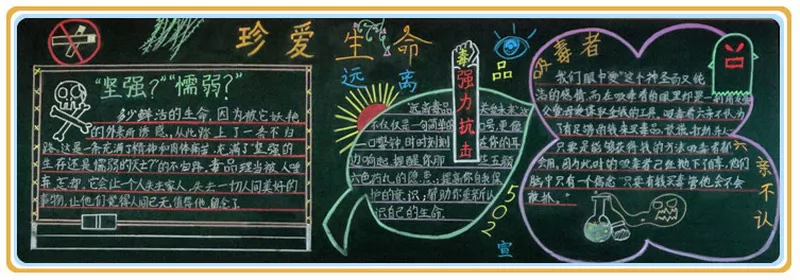 珍爱生命
远离毒品
"坚强?""懦弱?"
多少鲜活的生命,因为被它妖艳
的外表所诱惑,从此踏上了一条不归
路,这是一条充满了精神和肉体痛苦,充满了坚强的
生存还是懦弱的死亡的不归路,毒品理当被人唾
弃,忘却,它会让个人失去家人,失去一切人间美好的
事物,让他们觉得人间已无值得他留念了
强力抗击
不仅仅是一句简单的口号,更像
一口警钟时时刻刻在你的耳
边响起,提醒你那五颜
六色药丸的隐患,提高你自我保
护的意识,帮助你重新认
识自己的生命.
502宣
吸毒者
六亲不认
我们眼中"爱"这个神圣而又纯
洁的感情,而在吸毒者的眼里却是
只要是能够获得钱的方法吸毒者都
会用,因为此时的吸毒者已经抛下自尊,他们
脑中只有一个信念"只要有钱买毒管他会不会
被抓."